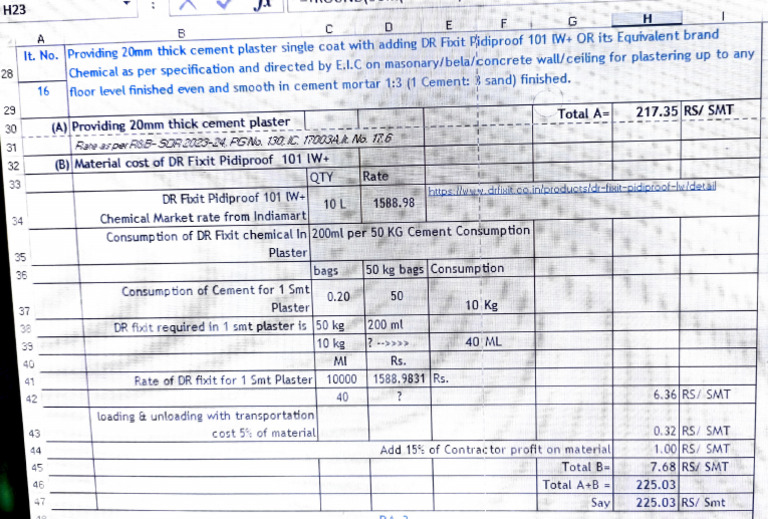 H23
A B C D E F G H I
28 It. No. Providing 20mm thick cement plaster single coat with adding DR Fixit Pidiproof 101 lW+ OR its Equivalent brand
Chemical as per specification and directed by E.I.C on masonary/bela/concrete wall/ceiling for plastering up to any
16 floor level finished even and smooth in cement mortar 1:3 (1 Cement: 3 sand) finished.
29
30 (A) Providing 20mm thick cement plaster Total A= 217.35 RS/ SMT
31 Rate as per R&B- SOR 2023-24, PG No. 130, IC. 17003A It. No. 17.6
32 (B) Material cost of DR Fixit Pidiproof 101 lW+
33 QTY Rate
https://www.drfixit.co.in/products/dr-fixit-pidiproof-lw/detail
DR Fixit Pidiproof 101 lW+
34 Chemical Market rate from Indiamart 10 L 1588.98
Consumption of DR Fixit chemical In 200ml per 50 KG Cement Consumption
35 Plaster
36 bags 50 kg bags Consumption
Consumption of Cement for 1 Smt
37 Plaster 0.20 50 10 Kg
38 DR fixit required in 1 smt plaster is 50 kg 200 ml
39 10 kg ? -->>>> 40 ML
40 Ml Rs.
41 Rate of DR fixit for 1 Smt Plaster 10000 1588.9831 Rs.
42 40 ? 6.36 RS/ SMT
loading & unloading with transportation
43 cost 5% of material 0.32 RS/ SMT
44 Add 15% of Contractor profit on material 1.00 RS/ SMT
45 Total B= 7.68 RS/ SMT
46 Total A+B = 225.03
47 Say 225.03 RS/ Smt